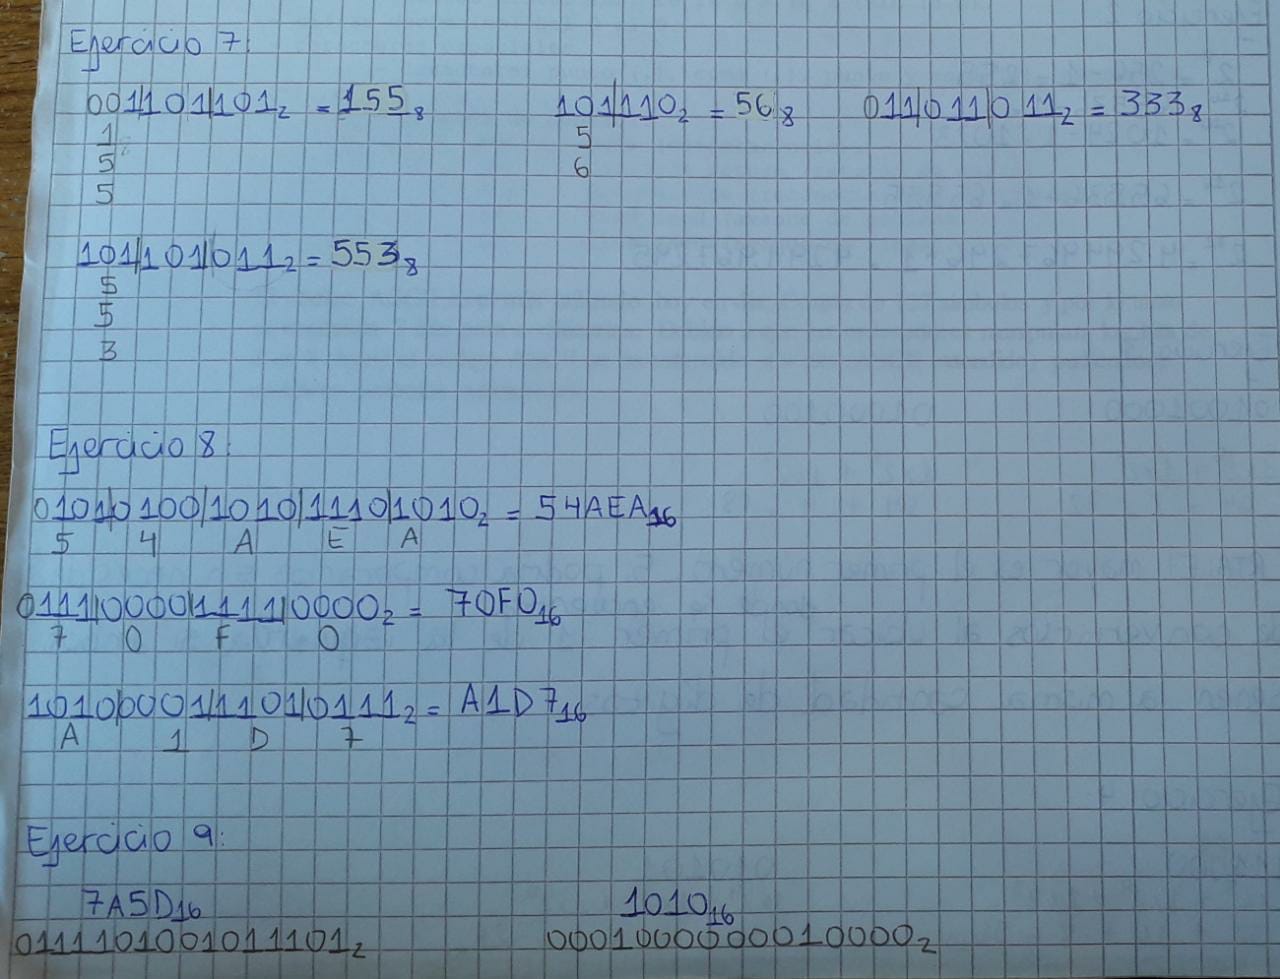 Ejercicio 7:
001|101|101₂ = 155₈ 101|110₂ = 56₈ 011|011|011₂ = 333₈
1 5
5 6
5
101|101|011₂ = 553₈
5
5
3
Ejercicio 8:
0101|0100|1010|1110|1010₂ = 54AEA₁₆
5 4 A E A
0111|0000|1111|0000₂ = 70F0₁₆
7 0 F 0
1010|0001|1101|0111₂ = A1D7₁₆
A 1 D 7
Ejercicio 9:
7A5D₁₆ 1010₁₆
0111101001011101₂ 0001000000010000₂